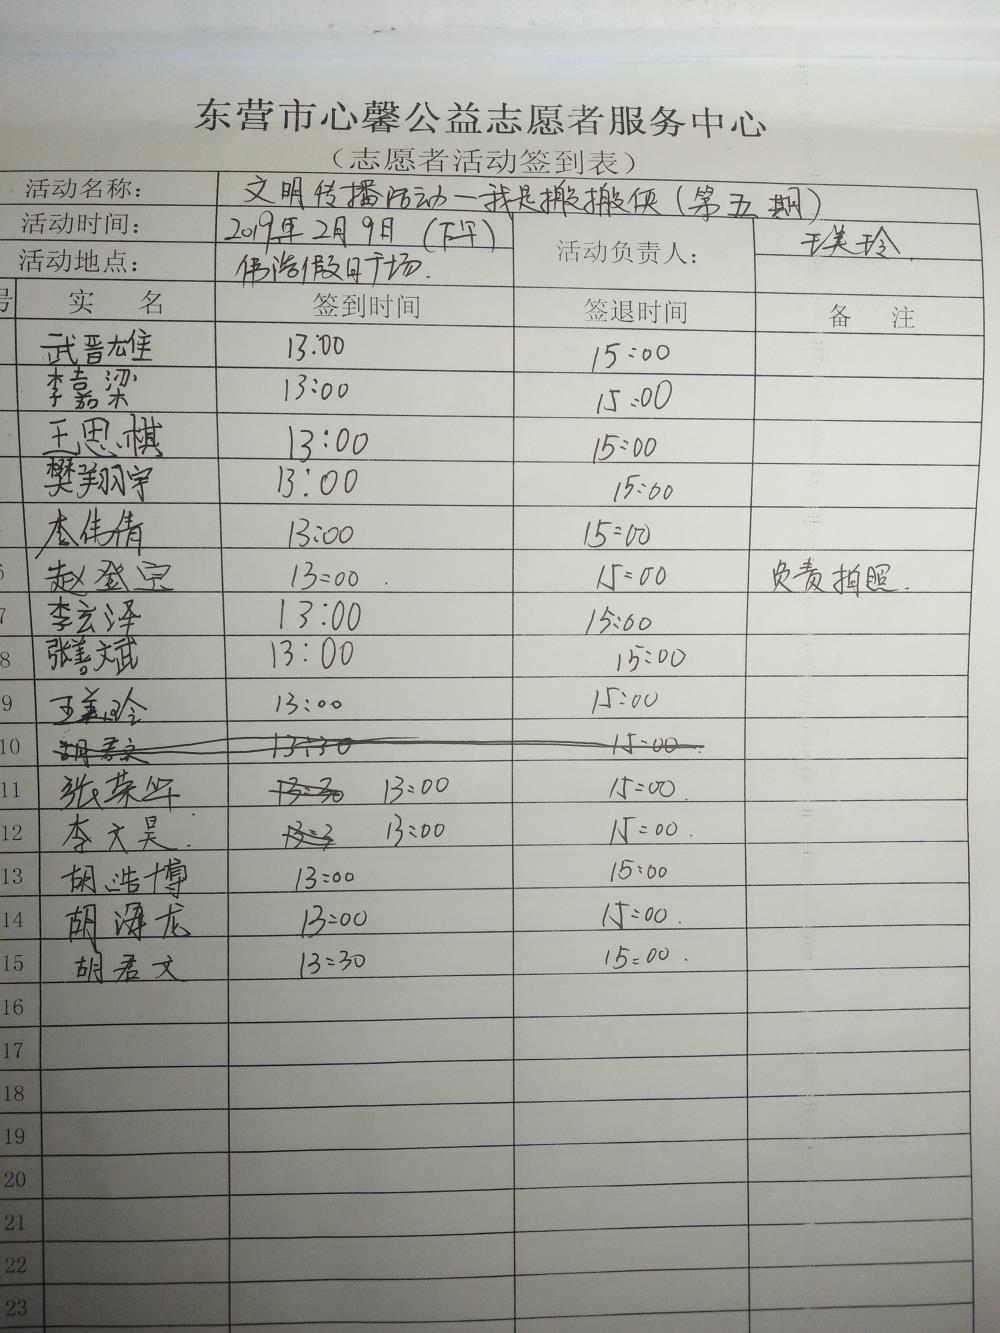 东营市心馨公益志愿者服务中心
（志愿者活动签到表）
活动名称： 文明传播活动—我是搬搬侠（第五期）
活动时间： 2019年2月9日（下午） 活动负责人： 王美玲
活动地点： 伟浩假日广场.
号 实 名 签到时间 签退时间 备 注
武晋雄 13:00 15:00
李嘉梁 13:00 15:00
王思棋 13:00 15:00
樊翔宇 13:00 15:00
李伟倩 13:00 15:00
6 赵登宝 13:00 . 15:00 负责拍照.
7 李玄泽 13:00 15:00
8 张善文斌 13:00 15:00
9 王美玲 13:00 15:00
10 胡君文 13:30 15:00
11 张荣华 13:30 13:00 15:00.
12 李文昊. 13:3 13:00 15:00.
13 胡浩博 13:00 15:00
14 胡海龙 13:00 15:00.
15 胡君文 13:30 15:00.
16
17
18
19
20
21
22
23